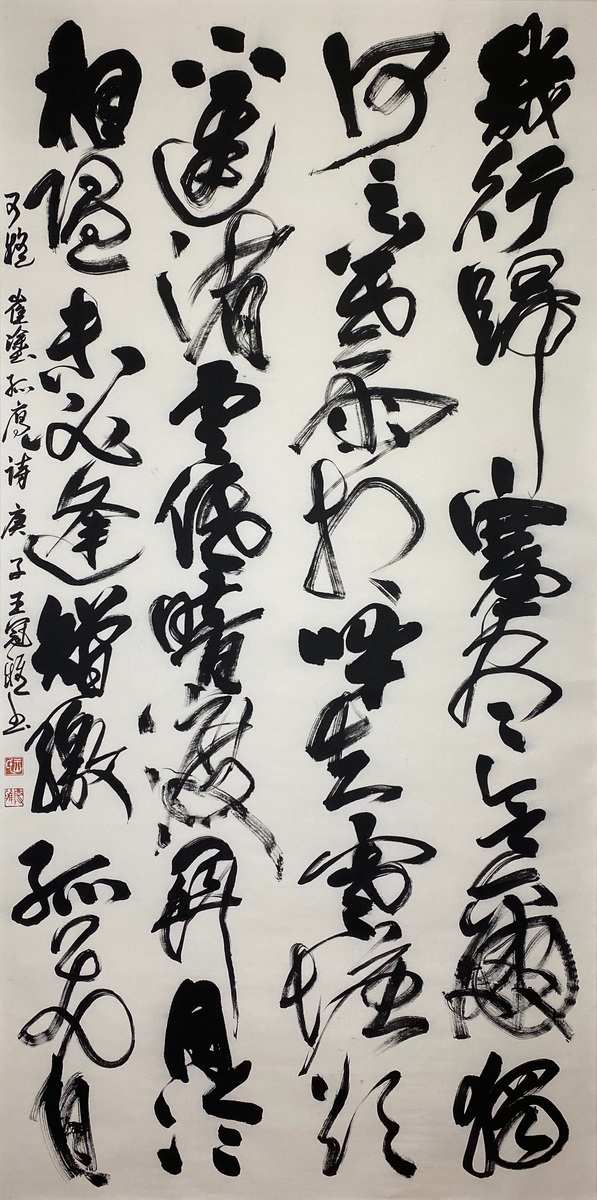 幾行歸塞尽念爾獨
何之暮雨相呼失寒塘欲
下遲渚雲低暗渡關月冷
相隨未必逢矰繳孤飛自
可疑 崔塗孤雁詩 庚子王冠书